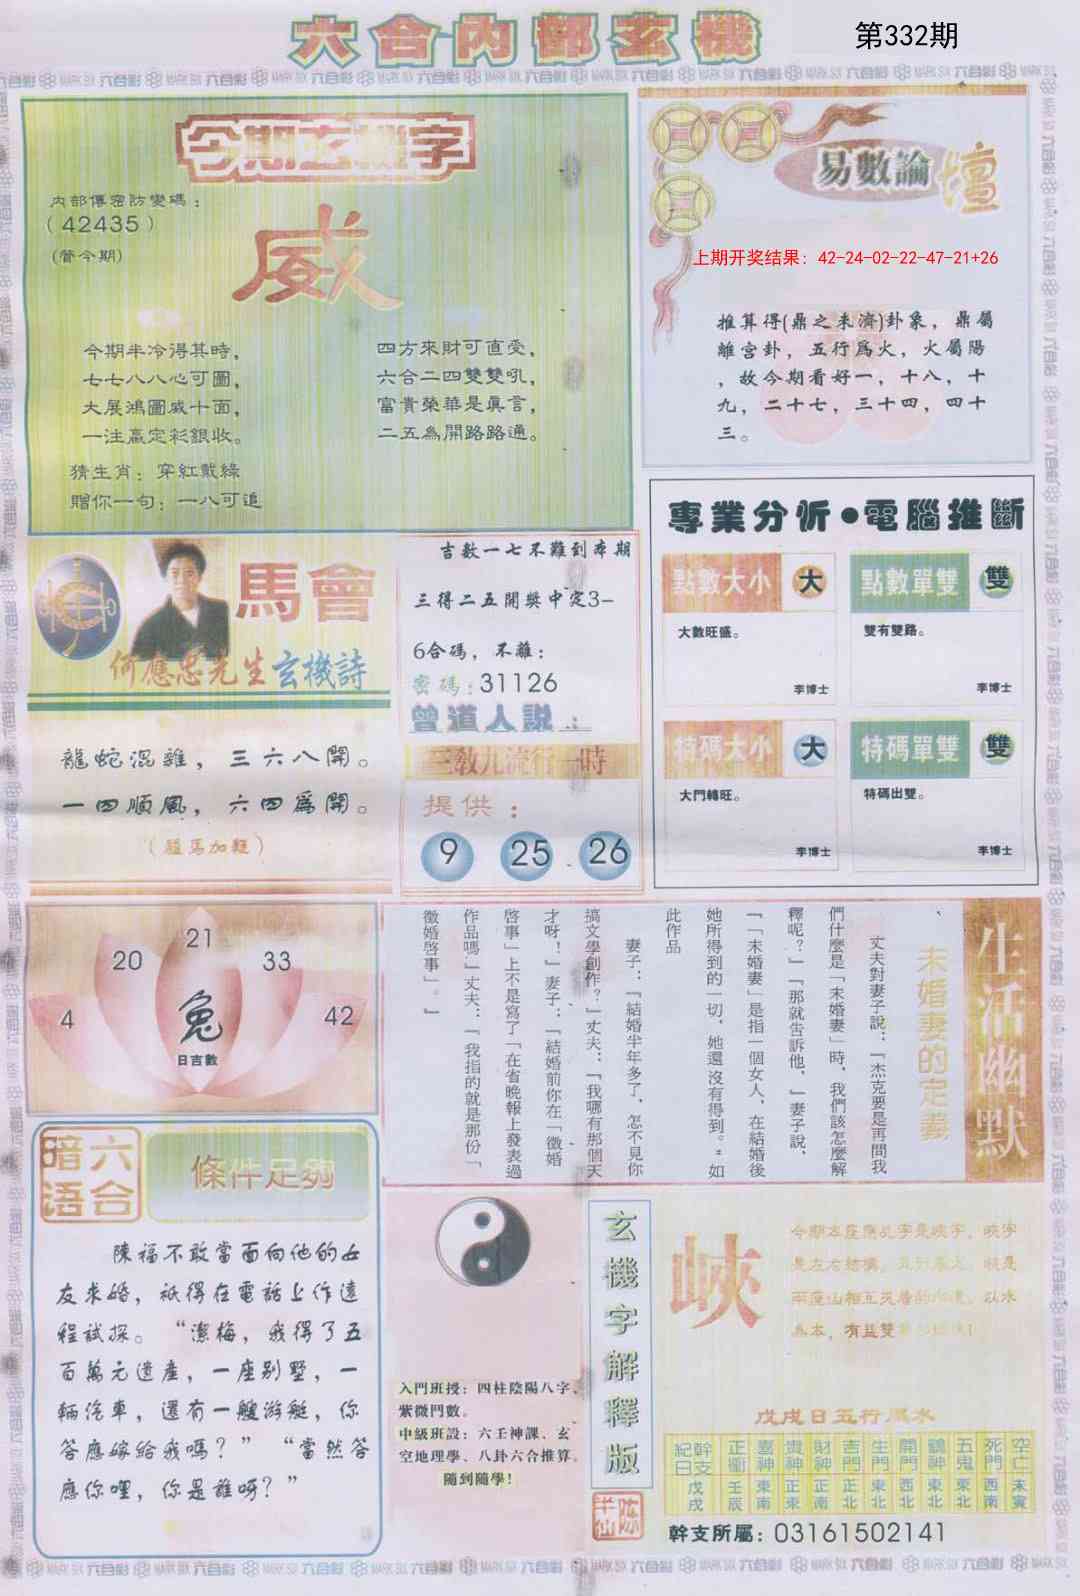 六合內部玄機
第332期
今期玄機字
內部傳密防變碼：
（42435）
(管今期)
威
今期半冷得其時，
七七八八心可圖，
大展鴻圖威十面，
一注贏定彩銀收。
四方來財可直受，
六合二四雙雙吼，
富貴榮華是真言，
二五為開路路通。
猜生肖：穿紅戴綠
贈你一句：一八可追
易數論壇
上期开奖结果：42-24-02-22-47-21+26
推算得(鼎之未濟)卦象，鼎屬
離宮卦，五行為火，火屬陽
，故今期看好一，十八，十
九，二十七，三十四，四十
三。
專業分析●電腦推斷
點數大小 大
大數旺盛。
李博士
點數單雙 雙
雙有雙路。
李博士
特碼大小 大
大門轉旺。
李博士
特碼單雙 雙
特碼出雙。
李博士
馬會
何應忠先生玄機詩
龍蛇混雜，三六八開。
一四順風，六四為開。
吉數一七不難到本期
三得二五開獎中定3-
6合碼，不離：
密碼:31126
曾道人說：
三教九流行一時
提供：
9 25 26
4 20 21 33 42
兔
日吉數
生活幽默
未婚妻的定義
丈夫對妻子說：「杰克要是再問我
們什麼是「未婚妻」時，我們該怎麼解
釋呢？」「那就告訴他，」妻子說，
「「未婚妻」是指一個女人，在結婚後
她所得到的一切，她還沒有得到。"如
此作品
妻子：「結婚半年多了，怎不見你
搞文學創作？」丈夫：「我哪有那個天
才呀！」妻子：「結婚前你在「徵婚
啓事」上不是寫了「在省晚報上發表過
作品嗎」丈夫：「我指的就是那份「
徵婚啓事」。」
六合暗语
條件足夠
陳福不敢當面向他的女
友求婚，祇得在電話上作遠
程試探。“潔梅，我得了五
百萬元遺産，一座别墅，一
輛汽車，還有一艘游艇，你
答應嫁給我嗎？”“當然答
應你哩，你是誰呀？”
入門班授：四柱陰陽八字、
紫微門數。
中級班設：六壬神課、玄
空地理學、八卦六合推算。
隨到隨學!
玄機字解釋版
峽
戊戌日五行屬水
幹支紀日 正衝 喜神 貴神 財神 吉門 生門 開門 鶴神 五鬼 死門 空亡
戊戌 壬辰 東南 正東 正南 正北 東北 西北 東北 東北 西南 未寅
幹支所屬：03161502141